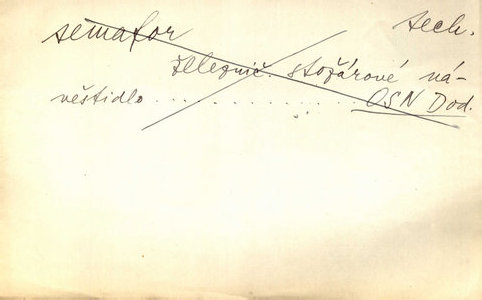 semafor tech.
železnič. stožárové ná-
věstidlo . . . . . . . . . . . . . . . OSN Dod.